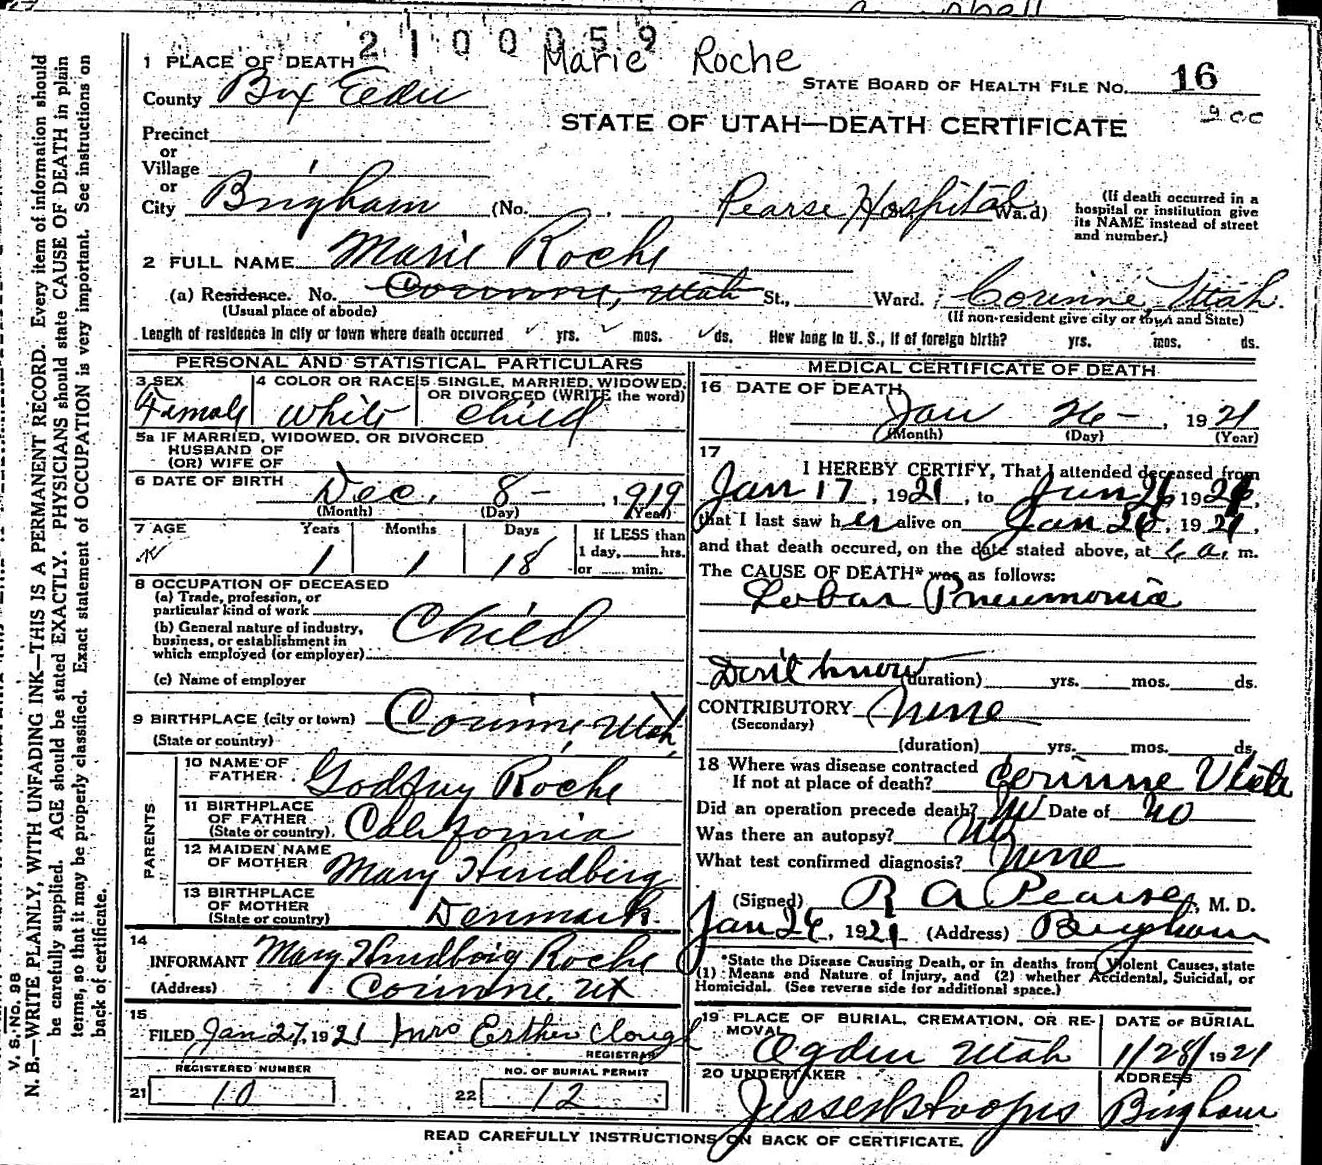 2100059
Marie Roche
1 PLACE OF DEATH
STATE BOARD OF HEALTH FILE No. 16
County Box Elder
9 cc
STATE OF UTAH—DEATH CERTIFICATE
Precinct
or
Village
or
City Brigham (No. Pearse Hospital Ward)
(If death occurred in a hospital or institution give its NAME instead of street and number.)
2 FULL NAME Marie Roche
(a) Residence. No. Corinne, Utah St., Ward. Corinne, Utah.
(Usual place of abode) (If non-resident give city or town and State)
Length of residence in city or town where death occurred yrs. mos. ds. How long in U. S., if of foreign birth? yrs. mos. ds.
PERSONAL AND STATISTICAL PARTICULARS
3 SEX Female
4 COLOR OR RACE White
5 SINGLE, MARRIED, WIDOWED, OR DIVORCED (WRITE the word) Child
5a IF MARRIED, WIDOWED, OR DIVORCED
HUSBAND OF
(OR) WIFE OF
6 DATE OF BIRTH Dec. 8- , 1919
(Month) (Day) (Year)
7 AGE Years Months Days If LESS than
1 1 18 1 day, hrs.
or min.
8 OCCUPATION OF DECEASED
(a) Trade, profession, or
particular kind of work
(b) General nature of industry,
business, or establishment in
which employed (or employer)
Child
(c) Name of employer
9 BIRTHPLACE (city or town) Corinne, Utah,
(State or country)
PARENTS
10 NAME OF FATHER Godfrey Roche
11 BIRTHPLACE OF FATHER (State or country) California
12 MAIDEN NAME OF MOTHER Mary
13 BIRTHPLACE OF MOTHER (State or country) Denmark
14
INFORMANT Mary Roche
(Address) Corinne, Ut
15
FILED Jan 27, 1921 Mrs Esther Clough
REGISTRAR
REGISTERED NUMBER
21 10
NO. OF BURIAL PERMIT
22 12
MEDICAL CERTIFICATE OF DEATH
16 DATE OF DEATH
Jan 26- , 1921
(Month) (Day) (Year)
17
I HEREBY CERTIFY, That I attended deceased from
Jan 17, 1921, to Jan 26 1921,
that I last saw her alive on Jan 26, 1921,
and that death occured, on the date stated above, at 6 a. m.
The CAUSE OF DEATH* was as follows:
Lobar Pneumonia
Don't know (duration) yrs. mos. ds.
CONTRIBUTORY None
(Secondary)
(duration) yrs. mos. ds.
18 Where was disease contracted
If not at place of death? Corinne Utah
Did an operation precede death? No Date of no
Was there an autopsy? No
What test confirmed diagnosis? None
(Signed) R A Pearse, M. D.
Jan 26, 1921 (Address) Brigham
*State the Disease Causing Death, or in deaths from Violent Causes, state
(1) Means and Nature of Injury, and (2) whether Accidental, Suicidal, or
Homicidal. (See reverse side for additional space.)
19 PLACE OF BURIAL, CREMATION, OR REMOVAL
Ogden Utah
DATE OF BURIAL
1/28/1921
20 UNDERTAKER
ADDRESS
Brigham
READ CAREFULLY INSTRUCTIONS ON BACK OF CERTIFICATE.
V. S. No. 98
N. B.—WRITE PLAINLY, WITH UNFADING INK—THIS IS A PERMANENT RECORD. Every item of information should
be carefully supplied. AGE should be stated EXACTLY. PHYSICIANS should state CAUSE OF DEATH in plain
terms, so that it may be properly classified. Exact statement of OCCUPATION is very important. See instructions on
back of certificate.